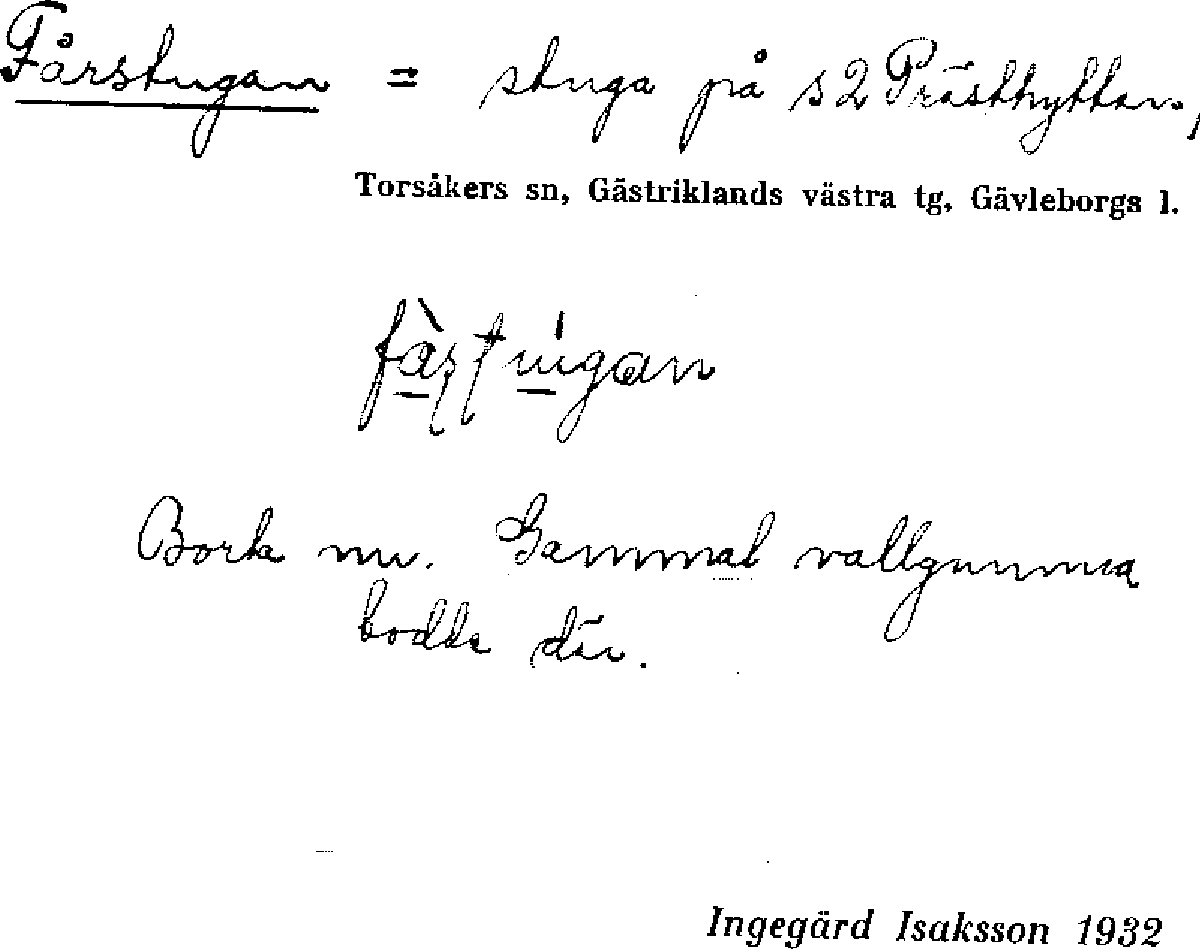 Fårstugan = stuga på s2 Prästhyttan,
Torsåkers sn, Gästriklands västra tg, Gävleborgs l.
Borta nu. Gammal vallgumma
bodde där.
Ingegärd Isaksson 1932